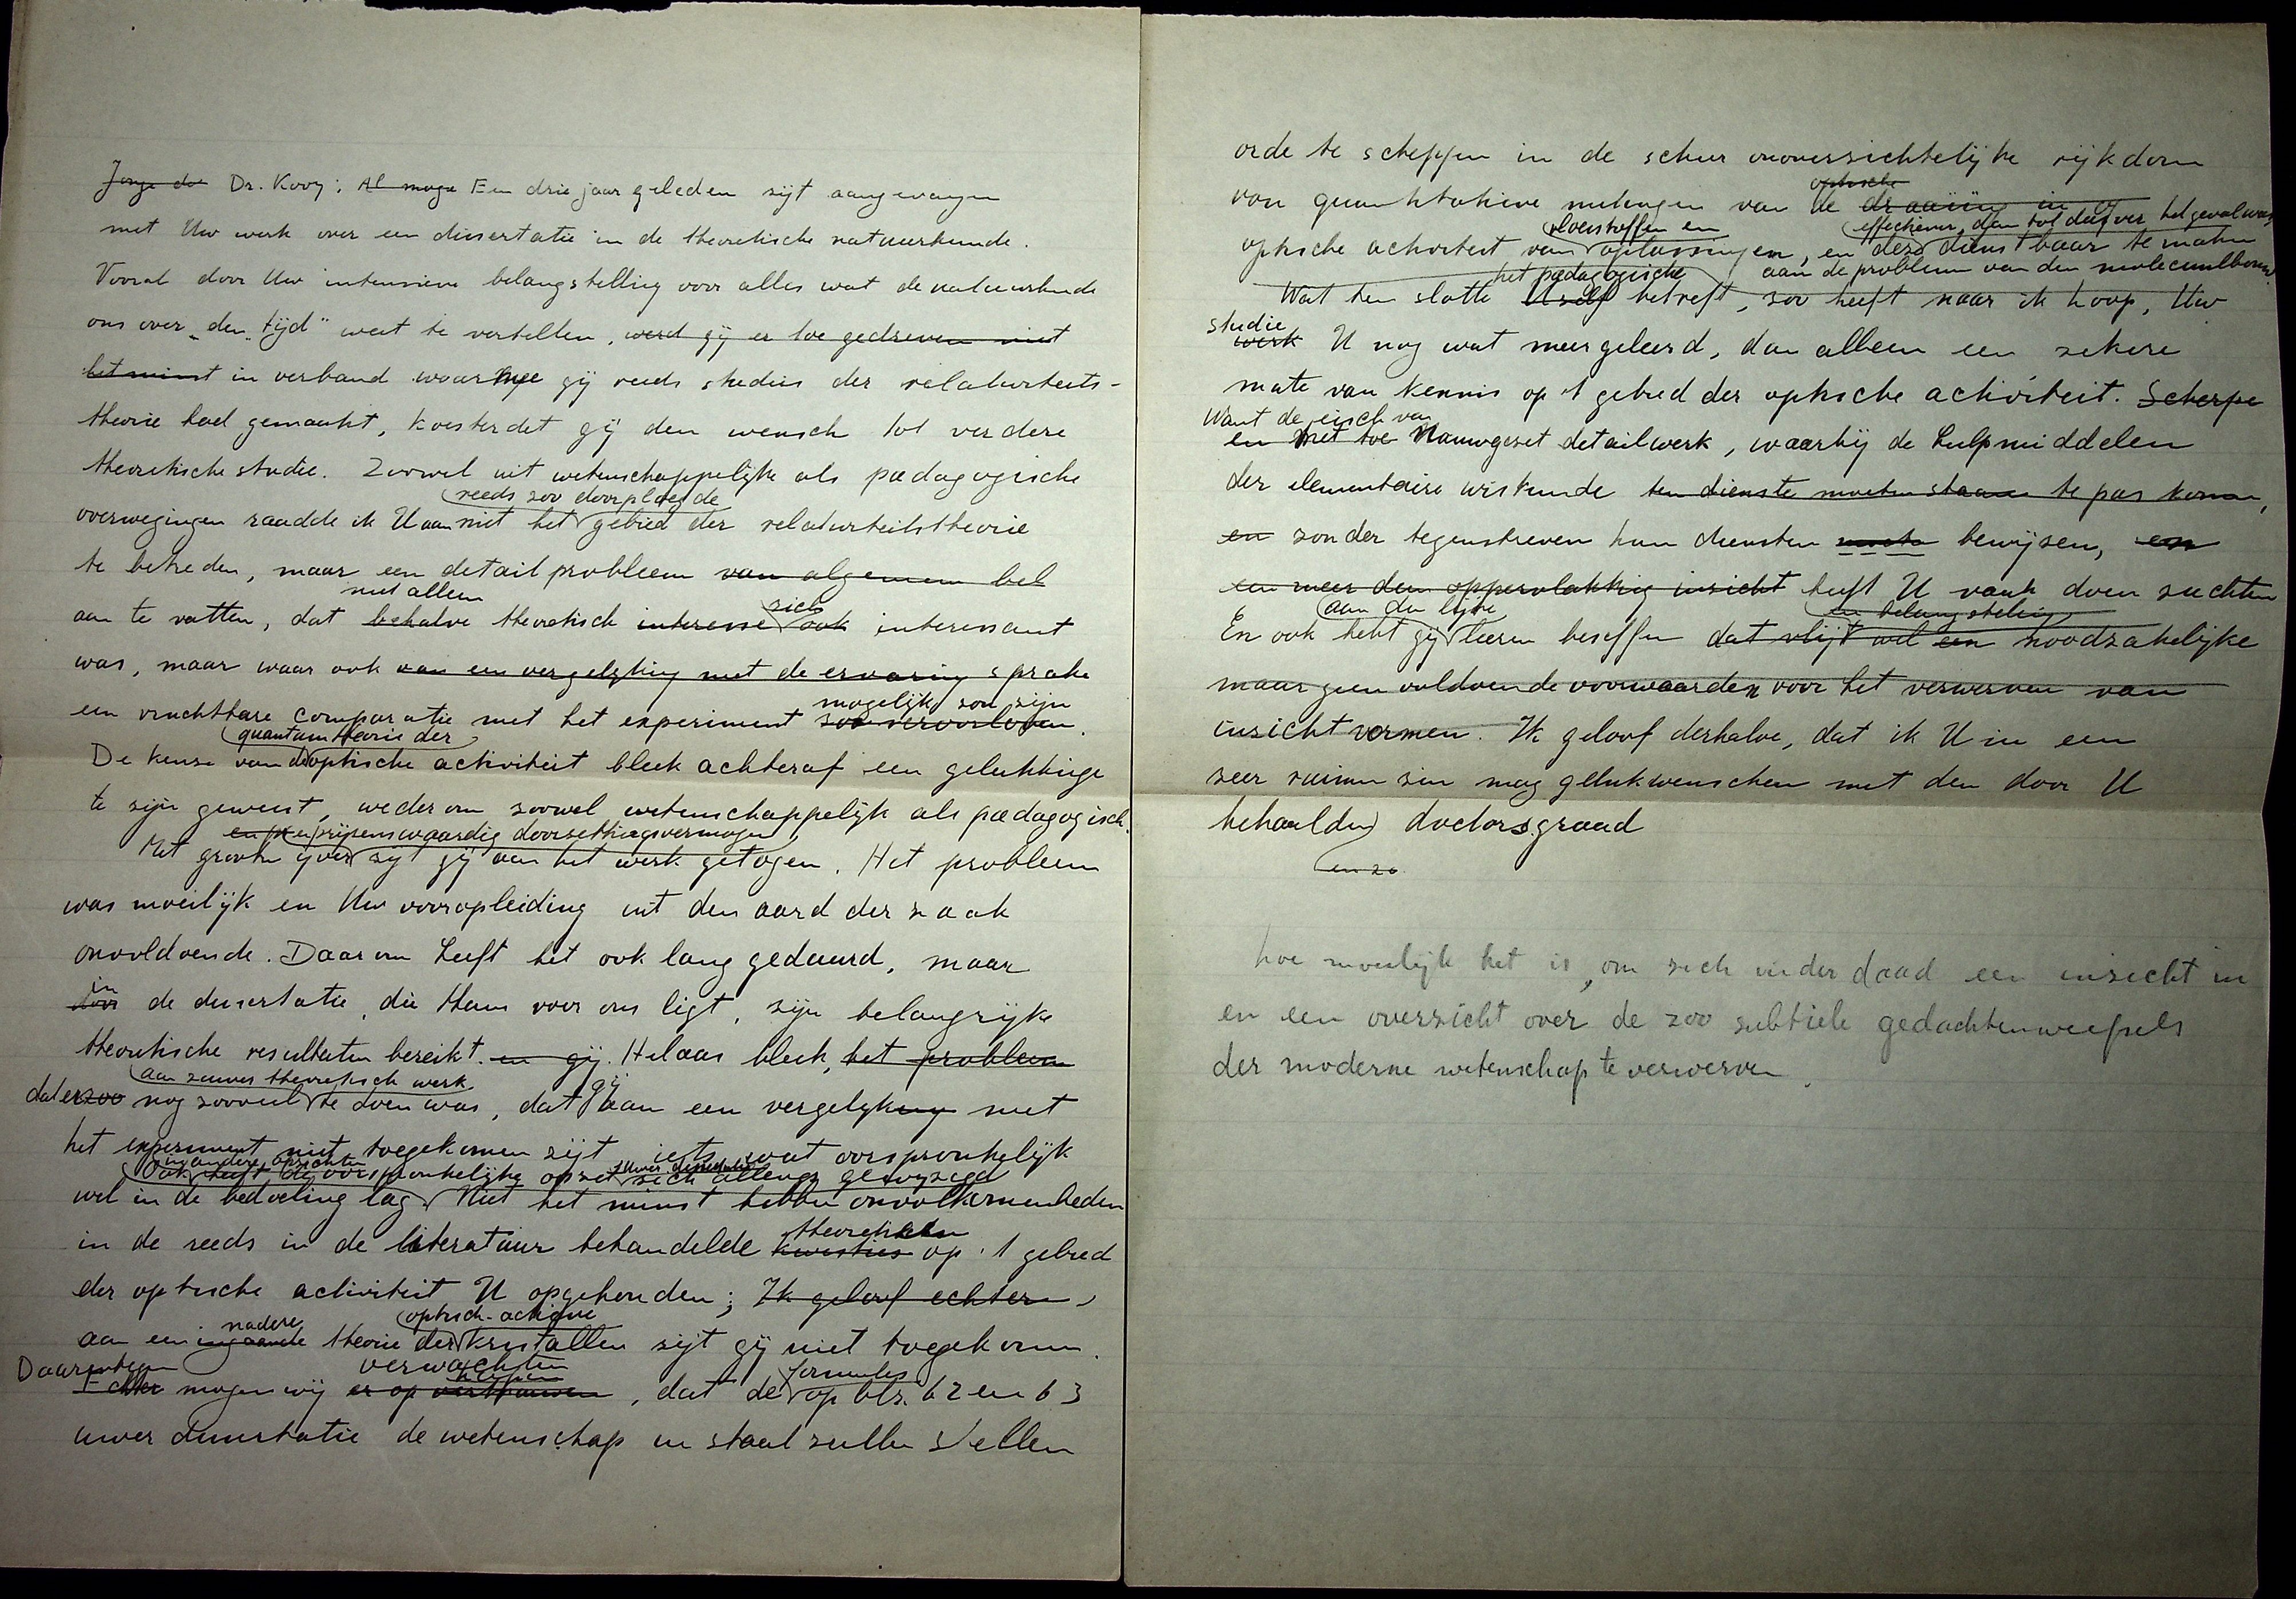 Jonge doc Dr. Kooy; Al moge Een drie jaar geleden zijt aangevangen
met Uw werk over een dissertatie in de theoretische natuurkunde.
Vooral door Uw intensieve belangstelling voor alles wat de natuurkunde
ons over „den tijd" weet te vertellen, werd gij er toe gedreven niet
het minst in verband waarmee gij reeds studies der relativiteits-
theorie had gemaakt, koesterdet gij den wensch tot verdere
theoretische studie. Zoowel uit wetenschappelijke als pædagogische
reeds zoo doorploegde
overwegingen raadde ik U aan niet het gebied der relativiteitstheorie
te betreden, maar een detailprobleem van algemeen bel
niet alleen
zich
aan te vatten, dat behalve theoretisch interesse ook interessant
was, maar waar ook van een vergelijking met de ervaring sprake
mogelijk zou zijn
een vruchtbare comparatie met het experiment zou veroorloven.
quantumtheorie der
De keuze van de optische activiteit bleek achteraf een gelukkige
te zijn geweest, wederom zoowel wetenschappelijk als pædagogisch.
en prijzenswaardig doorzettingsvermogen
Met grooten ijver zijt gij aan het werk getogen. Het probleem
was moeilijk en Uw vooropleiding uit den aard der zaak
onvoldoende. Daarom heeft het ook lang geduurd, maar
in
door de dissertatie, die thans voor ons ligt, zijn belangrijke
theoretische resultaten bereikt. en gij. Helaas bleek, het probleem
aan zuiver theoretisch werk
gij
dat er zoo nog zooveel te doen was, dat aan een vergelijking met
het experiment niet toegekomen zijt, iets wat oorspronkelijk
in andere opzichten
Ook heeft de oorspronkelijke opzet uwer dissertatie zich allengs gewijzigd
wel in de bedoeling lag. Niet het minst hebben onvolkomenheden
theorieën
in de reeds in de literatuur behandelde kwesties op 't gebied
der optische activiteit U opgehouden; Ik geloof echter
nadere
optisch-actieve
aan een ingaande theorie der kristallen zijt gij niet toegekomen.
Daarentegen
verwachten
hopen
formules
Echter mogen wij er op vertrouwen, dat de op blz. 62 en 63
uwer dissertatie de wetenschap in staat zullen stellen
orde te scheppen in de schier onoverzichtelijke rijkdom
optische
van quantitatieve metingen van de draaiing in of
vloeistoffen en
effectiever, dan tot dusver het geval was,
optische activiteit van oplossingen, en deze dienstbaar te maken
aan de problemen van den molecuulbouw.
het pædagogische
Wat ten slotte Uzelf betreft, zoo heeft naar ik hoop, Uw
studie
werk U nog wat meer geleerd, dan alleen een zekere
mate van kennis op 't gebied der optische activiteit. Scherpe
Want de eisch van
en met toe Nauwgezet detailwerk, waarbij de hulpmiddelen
der elementaire wiskunde ten dienste moeten staan te pas komen,
en zonder tegenstreven hun diensten moeten bewijzen, en
een meer dan oppervlakkig inzicht heeft U vaak doen zuchten
aan den lijve
en belangstelling
En ook hebt gij leeren beseffen dat vlijt wel een noodzakelijke
maar geen voldoende voorwaarden voor het verwerven van
inzicht vormen. Ik geloof derhalve, dat ik U in een
zeer ruimen zin mag gelukwenschen met den door U
behaalden doctorsgraad
en zo
hoe moeilijk het is, om zich inderdaad een inzicht in
en een overzicht over de zoo subtiele gedachtenweefsels
der moderne wetenschap te verwerven.